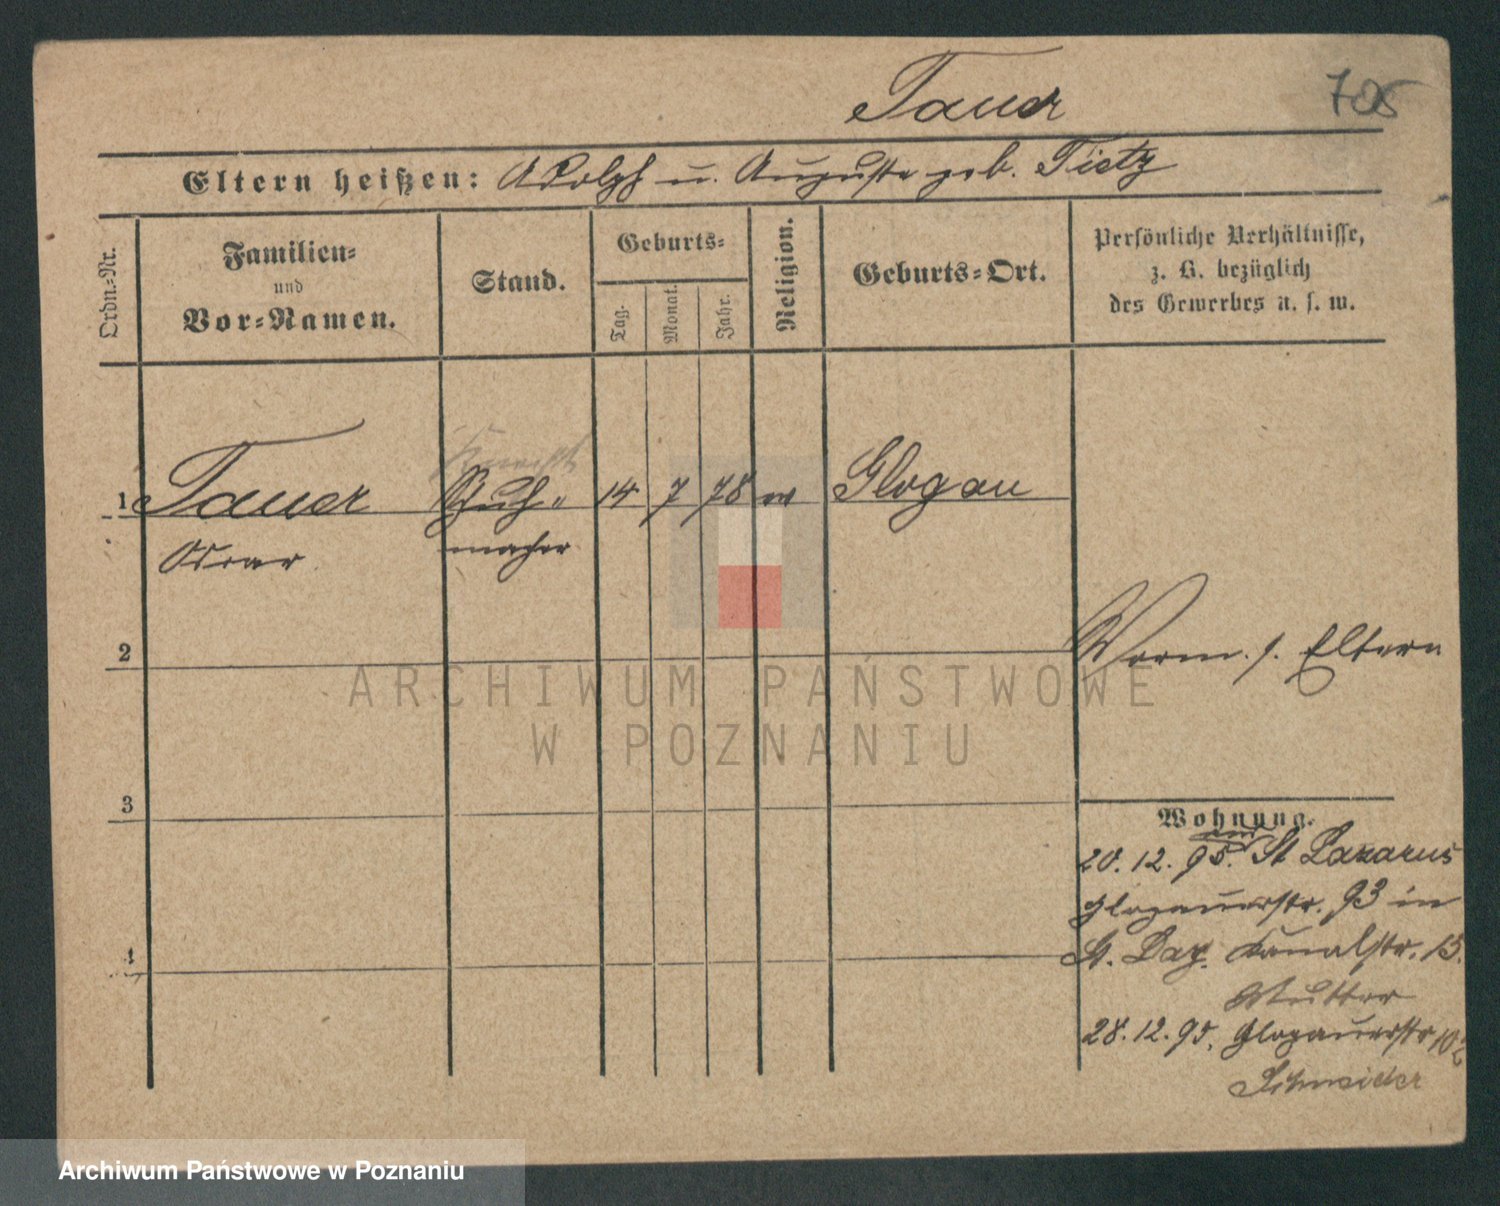 Tauer
705
Eltern heißen: Adolph u. Auguste geb. Tietz
Ordn.-Nr.
Familien-
und
Vor-Namen.
Stand.
Geburts-
Tag.
Monat.
Jahr.
Religion.
Geburts-Ort.
Persönliche Verhältnisse,
z. B. bezüglich
des Gewerbes u. s. w.
1 Tauer Schuh- 14 7 78 Glogau
Oscar macher
2
Vorm. s. Eltern
3
Wohnung.
20. 12. 95. St Lazarus
Glogauerstr. 93 in
St. Laz. Kanalstr. 13.
Mutter
4
28. 12. 95. Glogauerstr
Schneider
ARCHIWUM PAŃSTWOWE
W POZNANIU
Archiwum Państwowe w Poznaniu